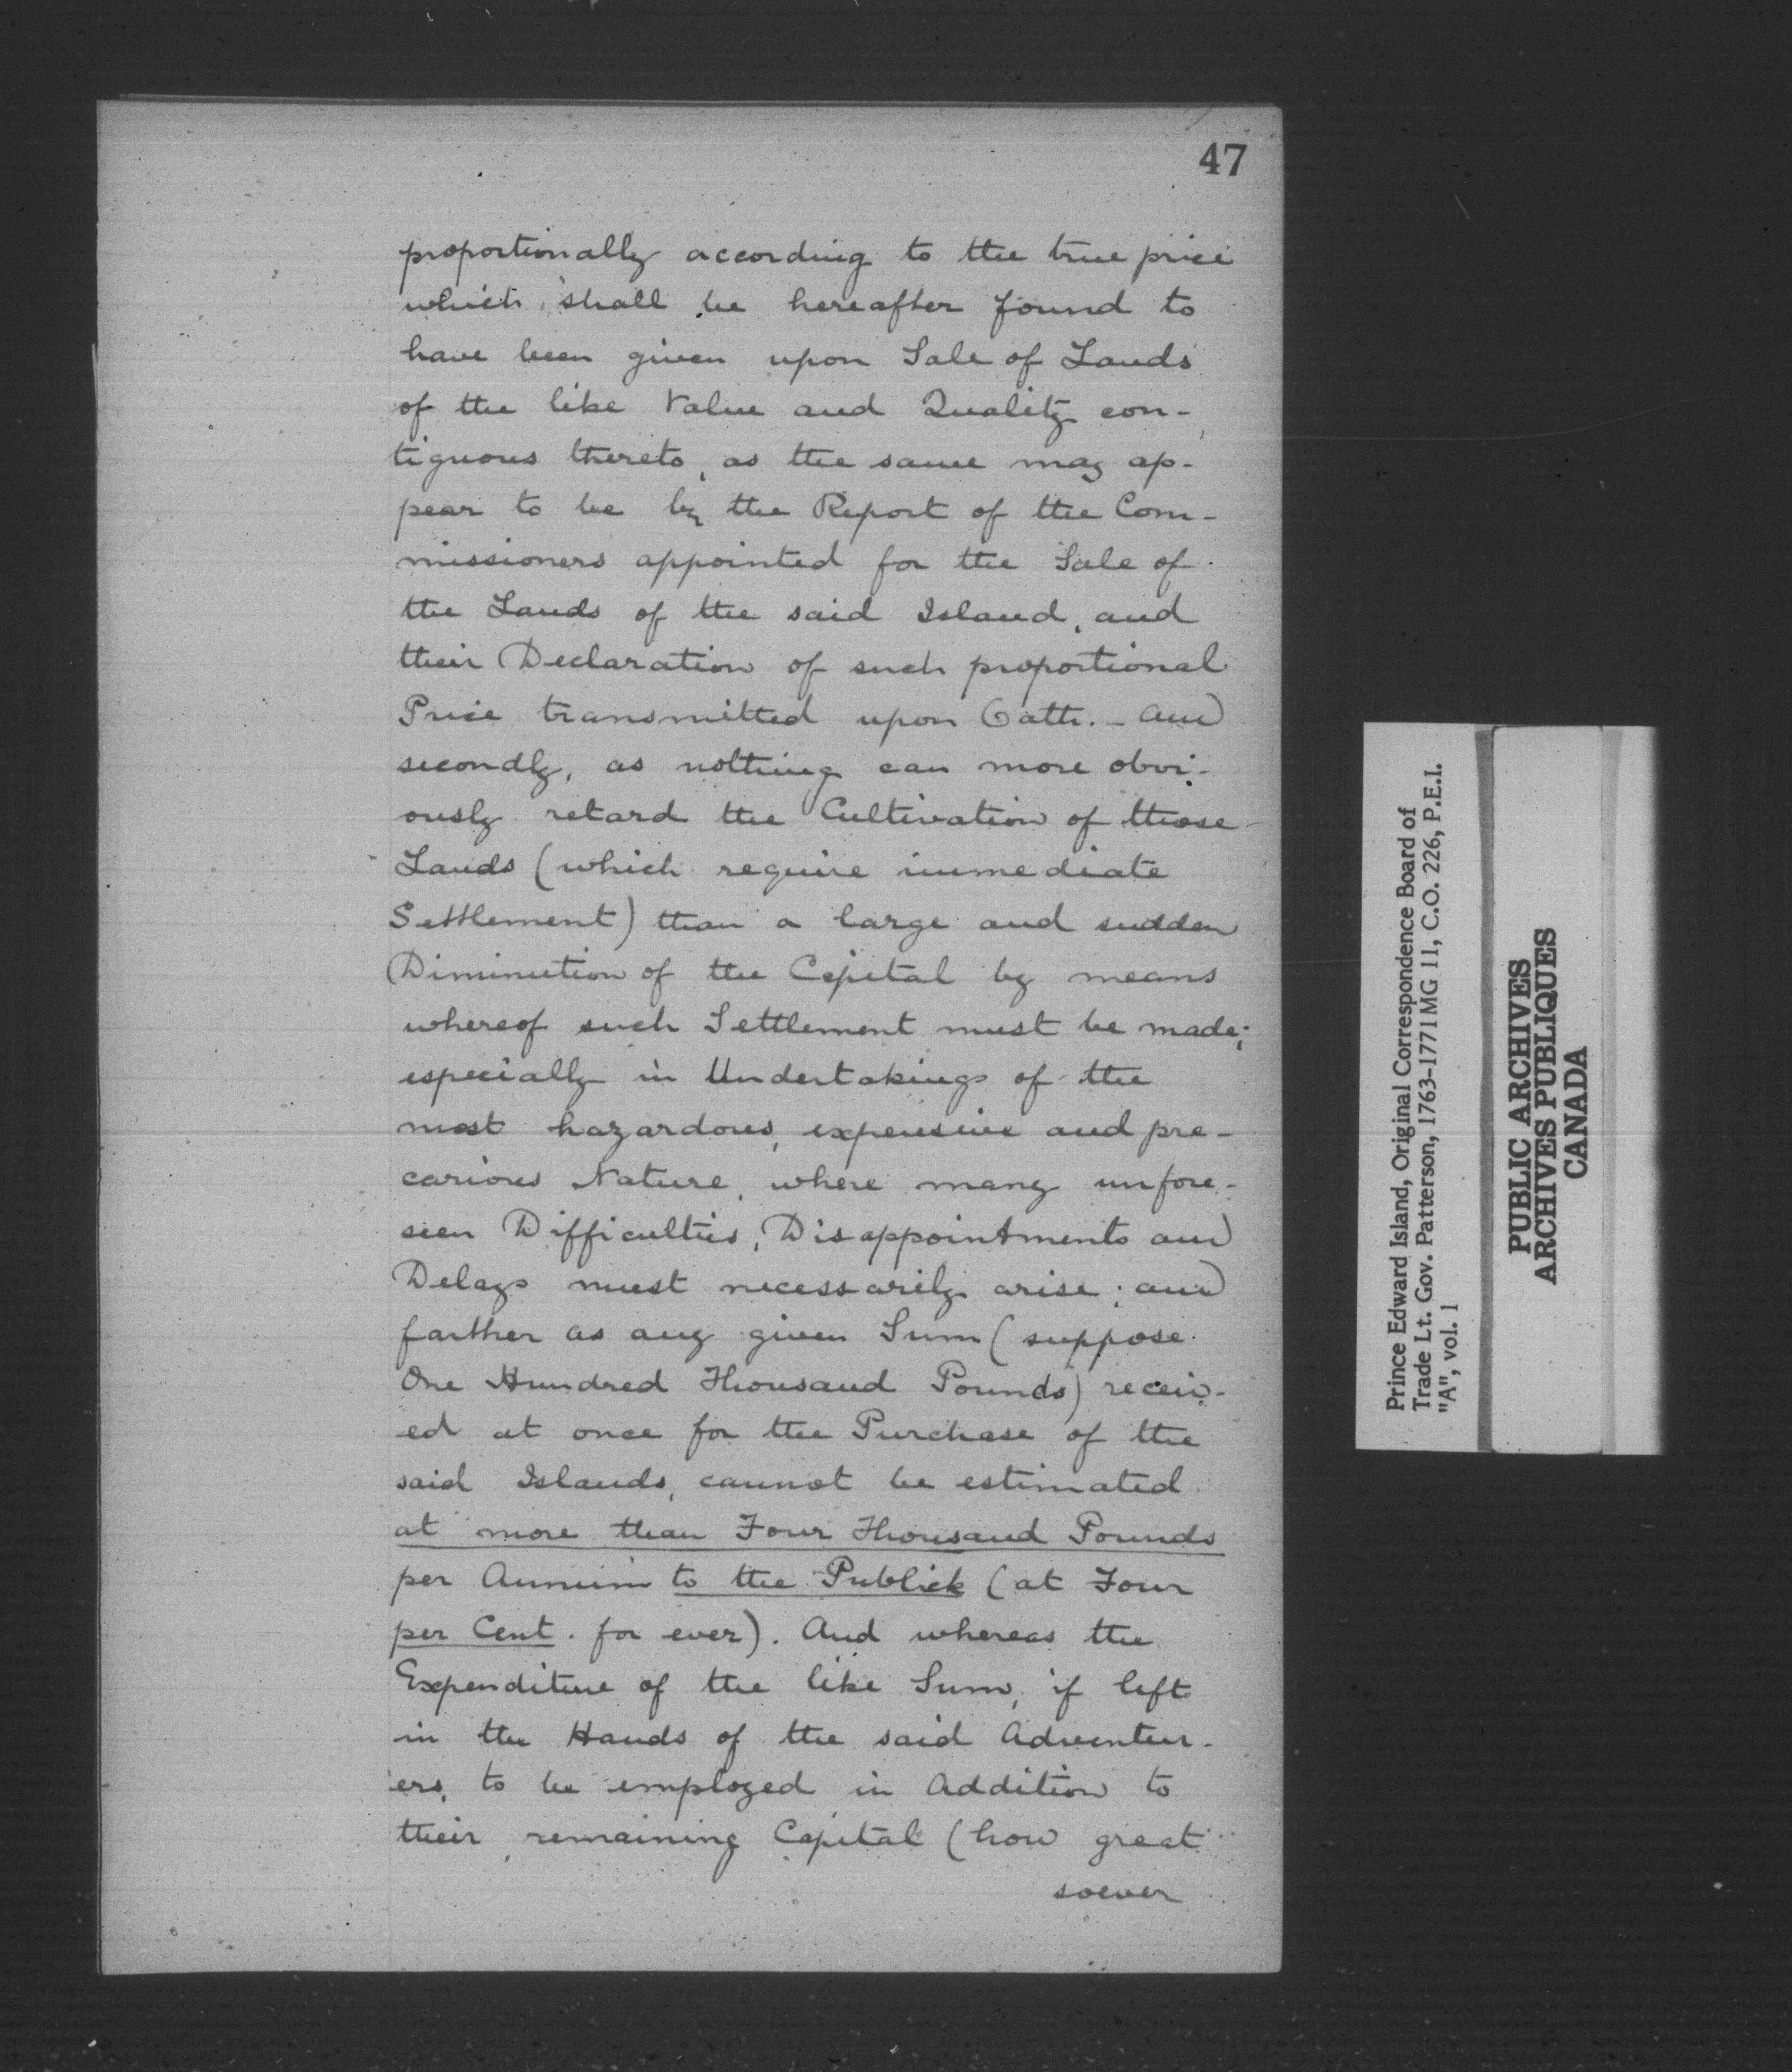 47
proportionally according to the true price
which shall be hereafter found to
have been given upon Sale of Lands
of the like Value and Quality con-
tiguous thereto, as the same may ap-
pear to be by the Report of the Com-
missioners appointed for the Sale of
the Lands of the said Island, and
their Declaration of such proportional
Price transmitted upon Oath. - And
secondly, as nothing can more obvi-
ously retard the Cultivation of those
Lands (which require immediate
Settlement) than a large and sudden
Diminution of the Capital by means
whereof such Settlement must be made;
especially in Undertakings of the
most hazardous, expensive and pre-
carious Nature, where many unfore-
seen Difficulties, Disappointments and
Delays must necessarily arise; and
farther as any given Sum (suppose
One Hundred Thousand Pounds) receiv-
ed at once for the Purchase of the
said Islands, cannot be estimated
at more than Four Thousand Pounds
per Annum to the Publick (at Four
per Cent. for ever). And whereas the
Expenditure of the like Sum, if left
in the Hands of the said Adventur-
ers, to be employed in Addition to
their remaining Capital (how great
soever
Prince Edward Island, Original Correspondence Board of
Trade Lt. Gov. Patterson, 1763-1771 MG 11, C.O. 226, P.E.I.
"A", vol. 1
PUBLIC ARCHIVES
ARCHIVES PUBLIQUES
CANADA